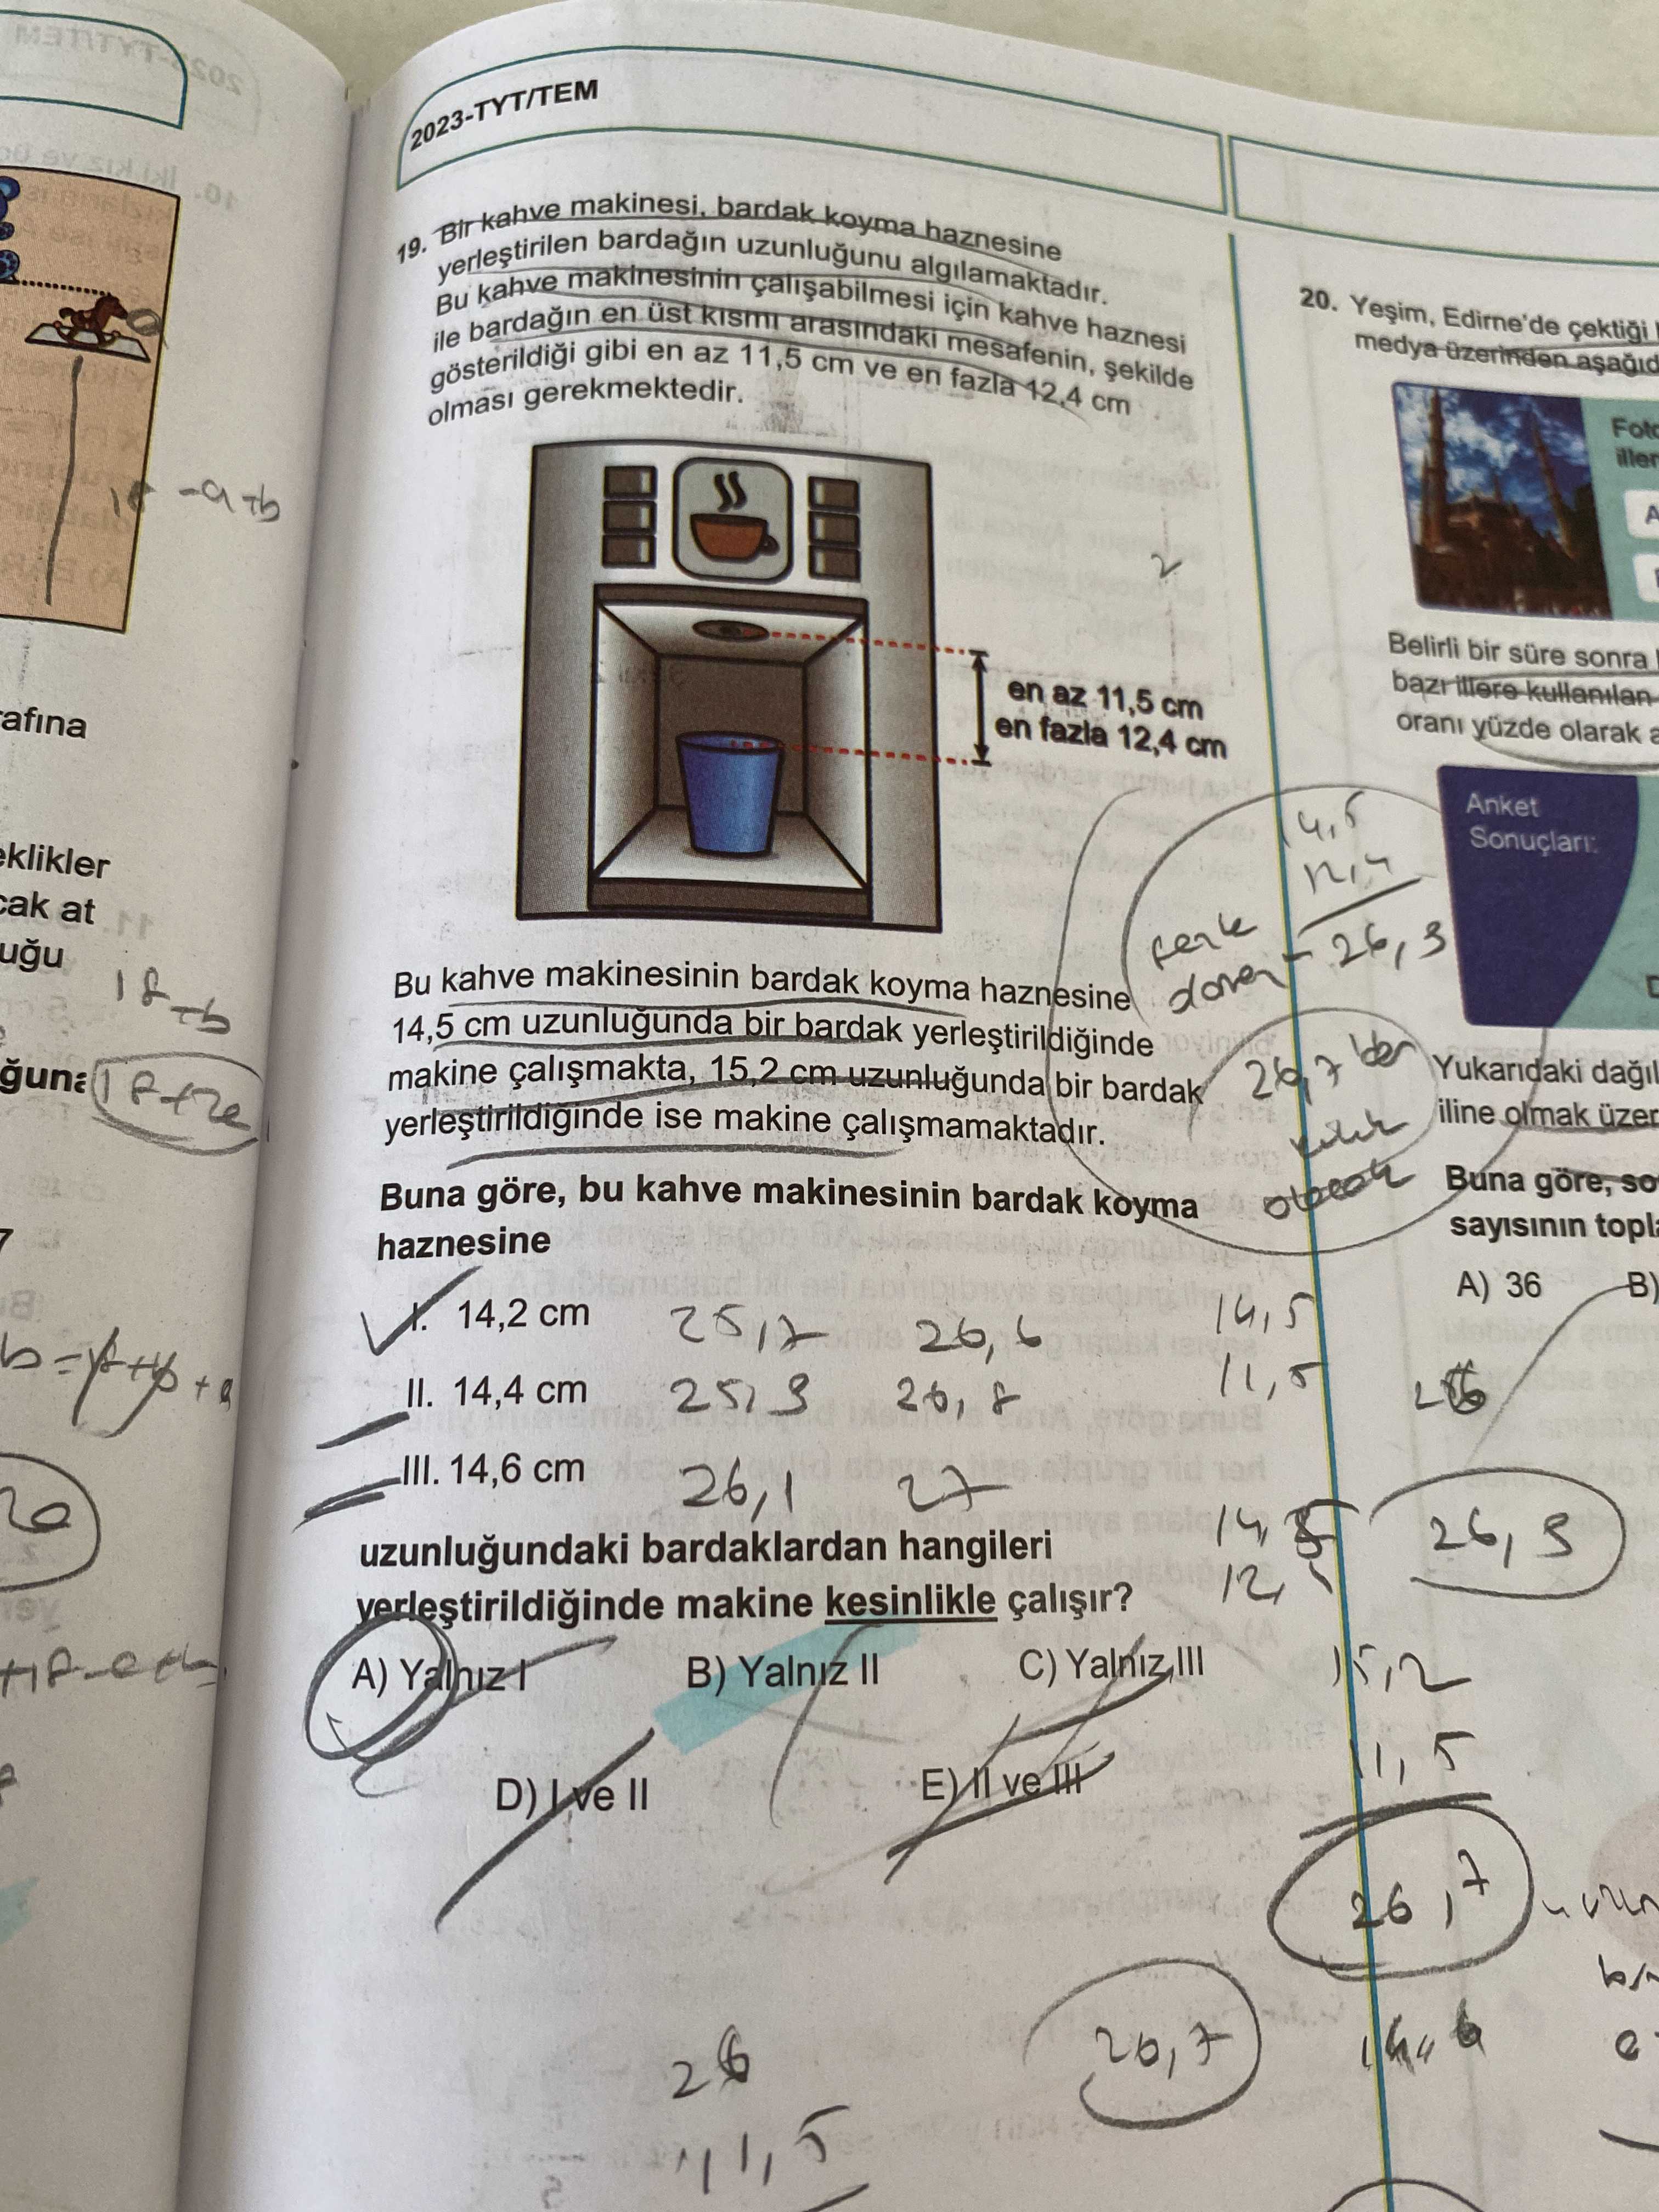 2023-TYT/TEM
19. Bir kahve makinesi, bardak koyma haznesine
yerleştirilen bardağın uzunluğunu algılamaktadır.
Bu kahve makinesinin çalışabilmesi için kahve haznesi
ile bardağın en üst kısmı arasındaki mesafenin, şekilde
gösterildiği gibi en az 11,5 cm ve en fazla 12,4 cm
olması gerekmektedir.
en az 11,5 cm
en fazla 12,4 cm
Bu kahve makinesinin bardak koyma haznesine
14,5 cm uzunluğunda bir bardak yerleştirildiğinde
makine çalışmakta, 15,2 cm uzunluğunda bir bardak
yerleştirildiğinde ise makine çalışmamaktadır.
Buna göre, bu kahve makinesinin bardak koyma
haznesine
I. 14,2 cm 25,7 26,6
II. 14,4 cm 25,9 26,8
III. 14,6 cm 26,1 27
uzunluğundaki bardaklardan hangileri
yerleştirildiğinde makine kesinlikle çalışır?
A) Yalnız I B) Yalnız II C) Yalnız III
D) I ve II E) II ve III
14,5
12,4
26,9
26,7
14,5
11,5
26
26,9
15,2
11,5
26,7
26,7
26
11,5
20. Yeşim, Edirne'de çektiği
medya üzerinden aşağıd
Foto
iller
A
Belirli bir süre sonra
bazı illere kullanılan
oranı yüzde olarak a
Anket
Sonuçları:
Yukarıdaki dağıl
iline olmak üzer
Buna göre, so
sayısının topla
A) 36 B)
afına
eklikler
cak at
uğu
ğuna
18-a+b
18-b
18+2a